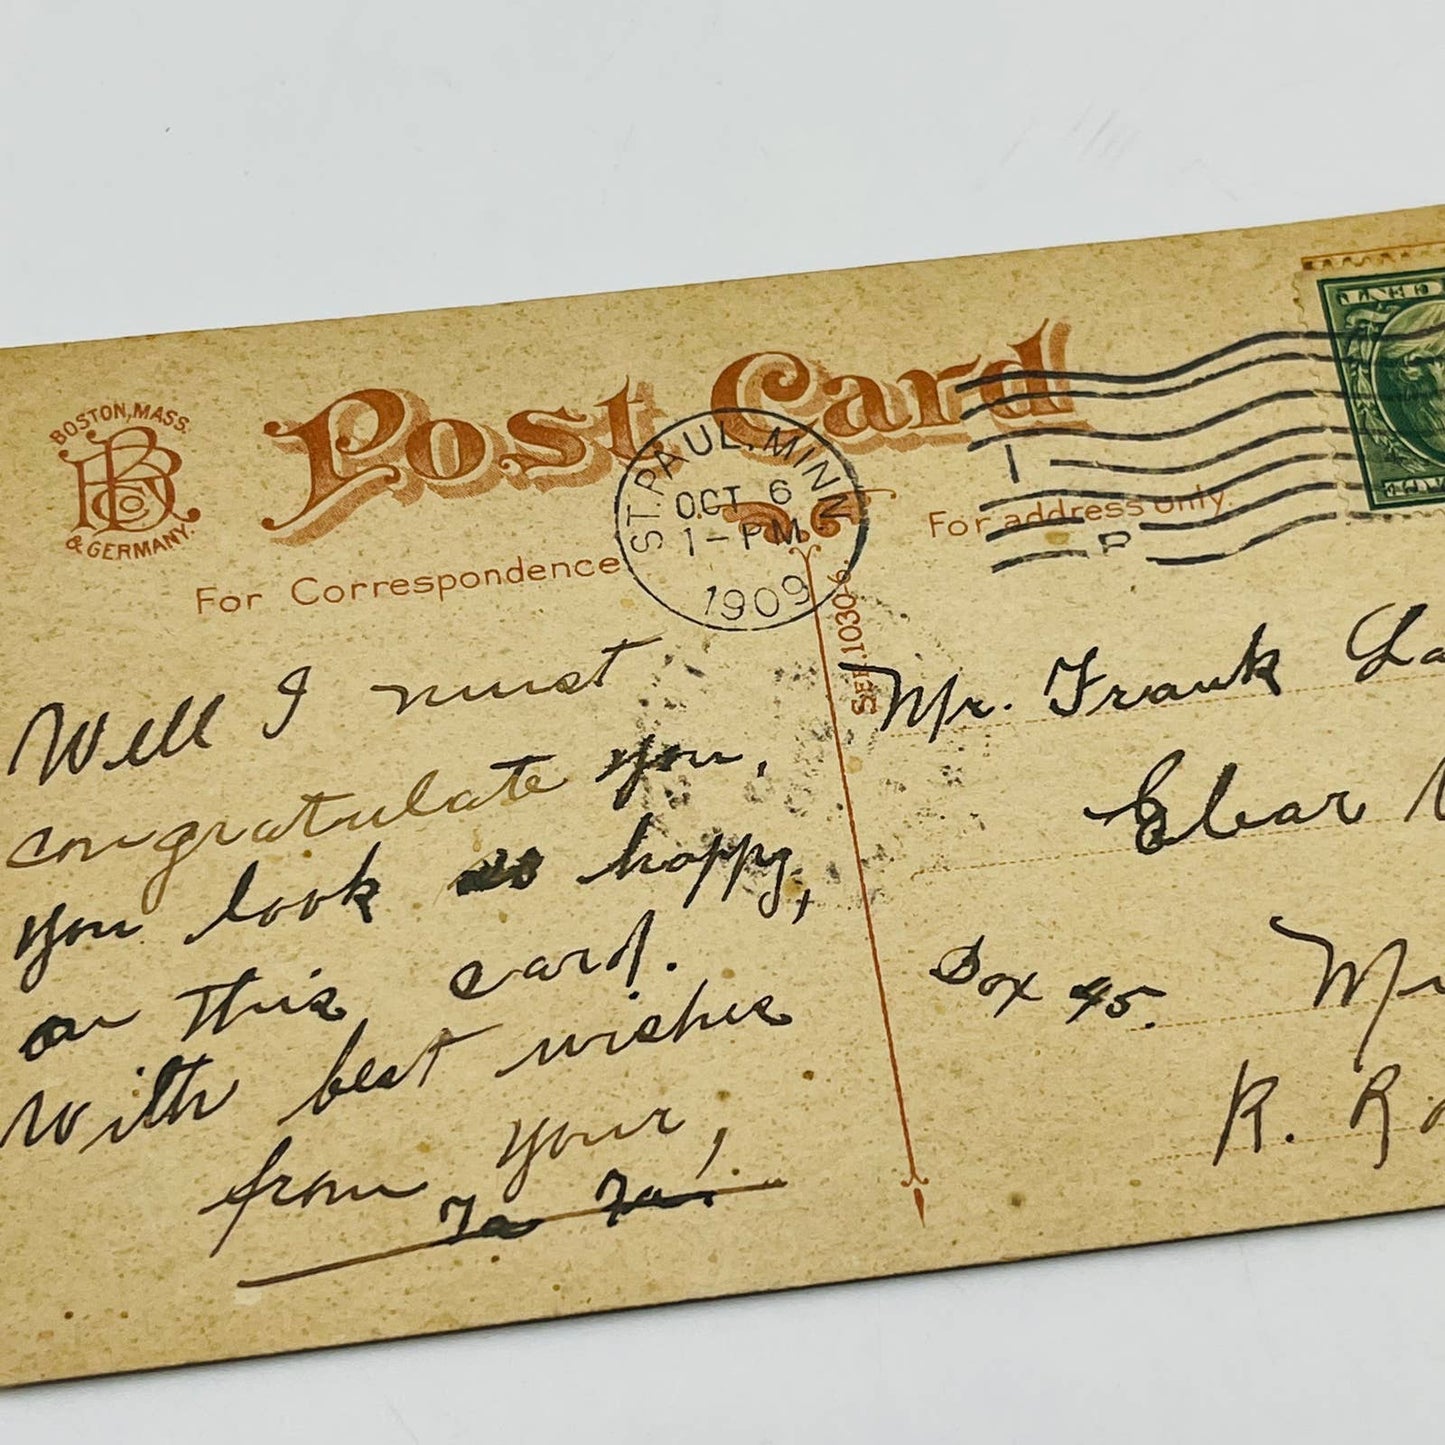 BOSTON, MASS.
BR Co
& GERMANY.
Post Card
For Correspondence
ST. PAUL, MINN
OCT 6
1-PM
1909
For address only.
SER. 1030-6.
Well I must
congratulate you,
you look so happy,
on this card.
With best wishes
from your,
Ta Ta.
Mr. Frank La
Clear
Box 45.
R. R